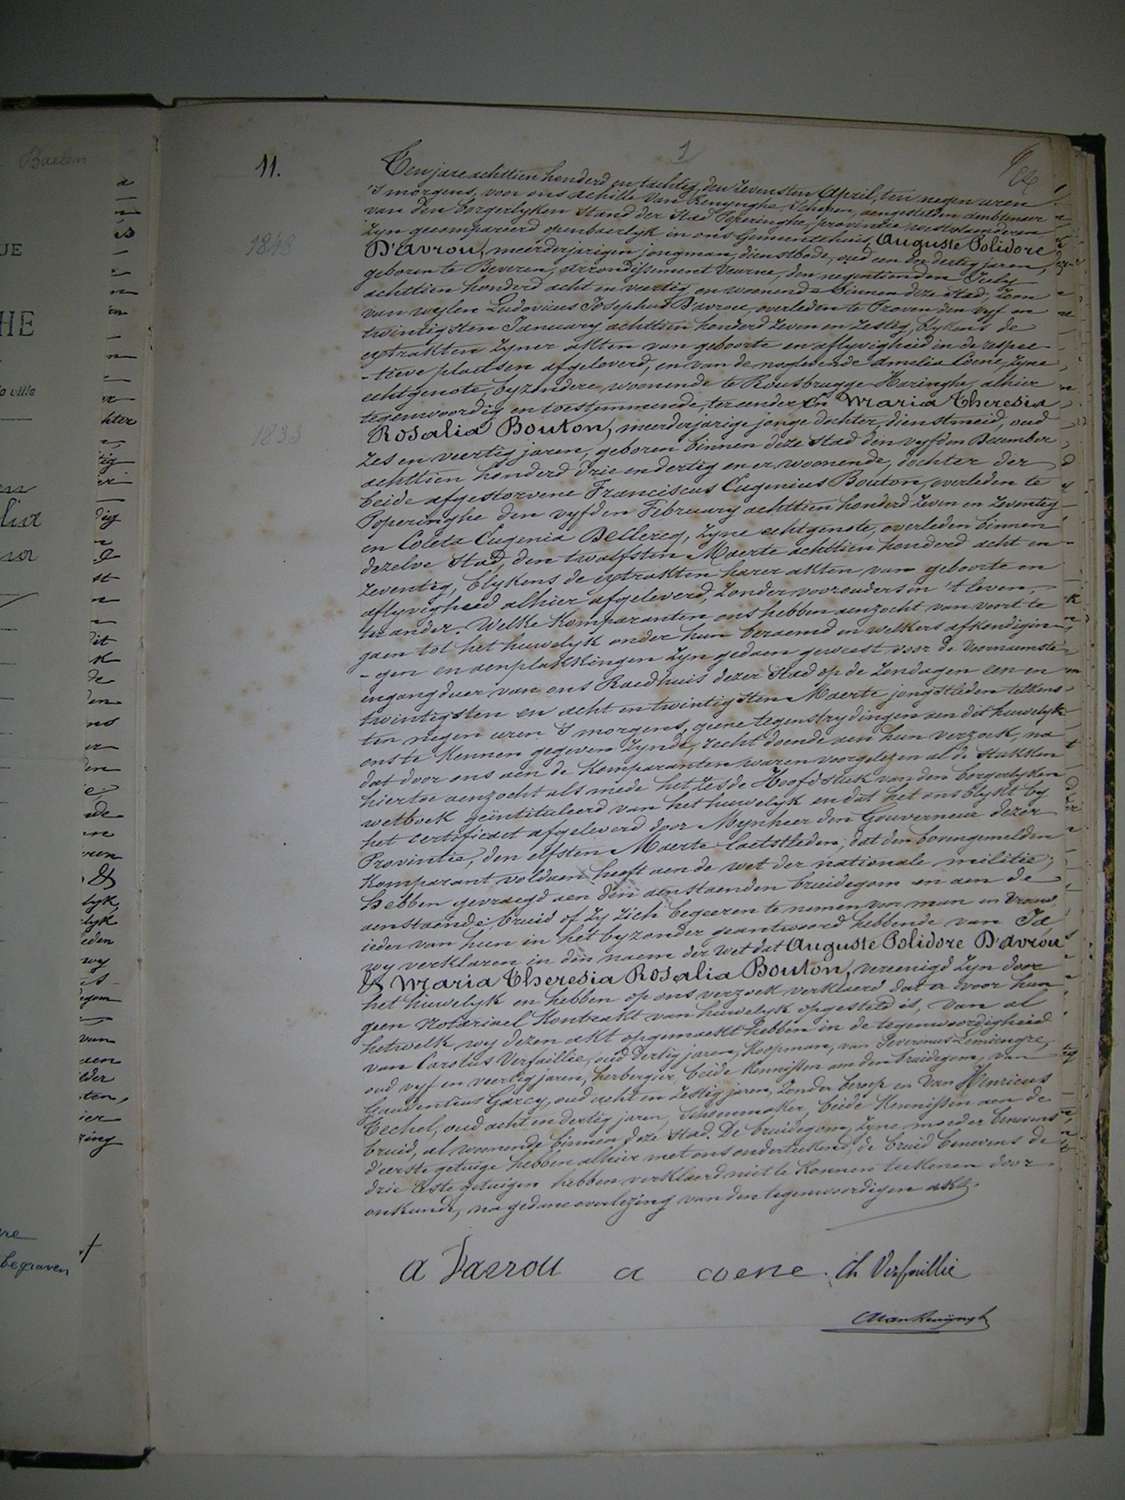 11.
1
Ten jare achttien honderd en tachtig, den zevensten April, ten negen uren
's morgens, voor ons Achille Van Renynghe, Schepen, aengestelden ambtenaer
van den Borgerlyken Stand der Stad Poperinghe, provincie westvlaenderen
zyn gecompareerd openbaerlyk in ons Gemeentehuis, Auguste Polidore
D'avrou, meerderjarigen jongman, dienstbode, oud een en dertig jaren,
geboren te Beveren, arrondissement Veurne, den negentienden July
achttien honderd acht en veertig en woonende binnen deze stad, zoon
van wylen Ludovicus Josephus D'avrou, overleden te Proven den vyf en
twintigsten January achttien honderd zeven en zestig, blykens de
extrakten zyner akten van geboorte en aflyvigheid in de respec-
-tieve plaetsen afgeleverd, en van de nagelende Amelia Coene, zyne
echtgenote, byzondere, woonende te Rousbrugge-Haringhe, alhier
tegenwoordig en toestemmende, ter eender En Maria Theresia
Rosalia Bouton, meerderjarige jonge dochter, dienstmeid, oud
zes en veertig jaren, geboren binnen deze stad den vyfden December
achttien honderd drie en dertig en er woonende, dochter der
beide afgestorvene Franciscus Eugenius Bouton, overleden te
Poperinghe den vyfden February achttien honderd zeven en zeventig
en Coleta Eugenia DeClercq, zyne echtgenote, overleden binnen
dezelve stad, den twalfsten Maerte achttien honderd acht en
zeventig, blykens de extrakten harer akten van geboorte en
aflyvigheid alhier afgeleverd, zonder voorouders in 't leven,
ter ander. Welke komparanten ons hebben aenzocht van voort te
gaen tot het huwelyk onder hun beraemd en welkers afkondigin-
-gen en aenplakkingen zyn gedaen geweest voor de voornaemste
ingangdeur van ons Raedhuis dezer stad op de zondagen een en
twintigsten en acht en twintigsten Maerte jongstleden telkens
ten negen uren 's morgens, geene tegenstrydingen aen dit huwelyk
ons te kennen gegeven zynde, recht doende aen hun verzoek, na
dat door ons aen de komparanten waren voorgelezen al de stukken
hiertoe aenzocht als mede het zesde Hoofdstuk van den borgerlyken
wetboek geïntituleerd van het huwelyk en dat het ons blykt by
het certificaet afgeleverd door Mynheer den Gouverneur dezer
Provintie, den elfsten Maerte laetstleden, dat den bovengemelden
komparant voldaen heeft aen de wet der nationale militie,
hebben gevraegd aen den aenstaenden bruidegom en aen de
aenstaende bruid of zy zich begeeren te nemen voor man en vrouw
ieder van hun in het byzonder geantwoord hebbende van Ja
wy verklaren in den naem der wet dat Auguste Polidore D'avrou
& Maria Theresia Rosalia Bouton, vereenigd zyn door
het huwelyk en hebben op ons verzoek verklaerd dat er door hun
geen notariael kontrakt van huwelyk opgesteld is, van al
hetwelk wy dezen akt opgemaekt hebben in de tegenwoordigheid
van Carolus Verfaillie, oud dertig jaren, koopman, van Severinus
oud vyf en veertig jaren, herbergier, beide kennissen aen den bruidegom, van
Gaudentius Garcy, oud acht en zestig jaren, zonder beroep en van Henricus
Techel, oud acht en dertig jaren, schoenmaker, beide kennissen aen de
bruid, al woonende binnen deze stad. De bruidegom, zyne moeder benevens
d'eerste getuige hebben alhier met ons onderteekend, de bruid benevens de
drie getuigen hebben verklaerd niet te konnen teekenen door
onkunde, na gedane overlezing van den tegenwoordigen akt.
A Davrou a coene. Ch Verfaillie
AVan Renynghe
1848
1833